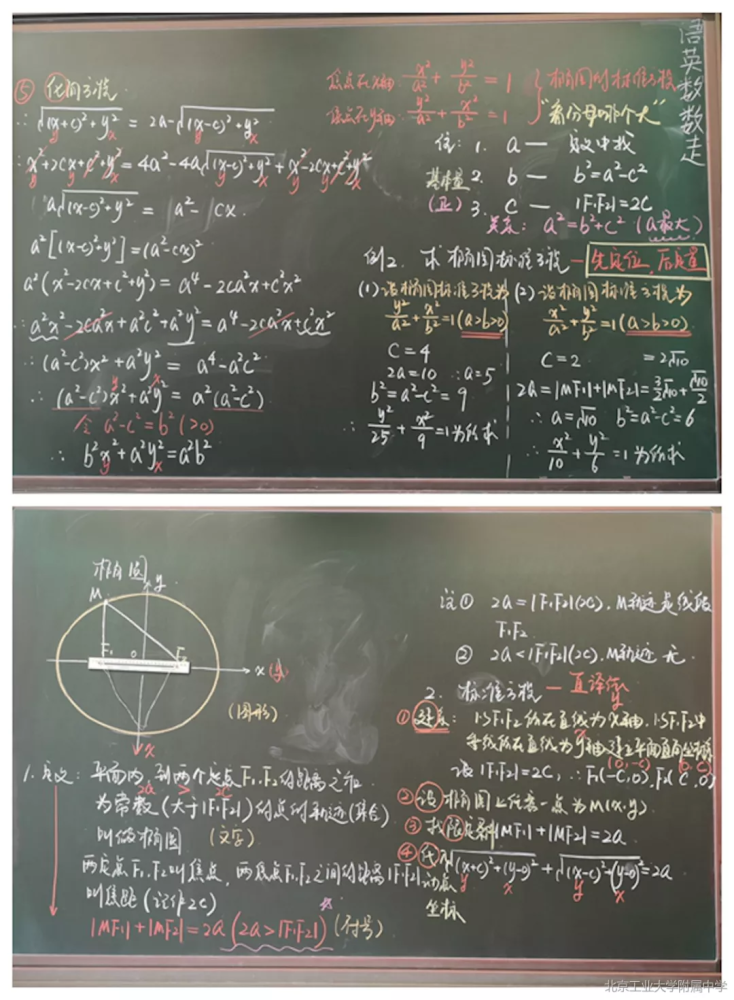 ⑤ 化简方程
∴ √(x+c)²+y² = 2a-√(x-c)²+y²
∴ x²+2cx+c²+y² = 4a²-4a√(x-c)²+y²+x²-2cx+c²+y²
a√(x-c)²+y² = a²-cx
a²[(x-c)²+y²]=(a²-cx)²
a²(x²-2cx+c²+y²) = a⁴-2ca²x+c²x²
∴ a²x²-2ca²x+a²c²+a²y² = a⁴-2ca²x+c²x²
∴ (a²-c²)x²+a²y² = a⁴-a²c²
∴ (a²-c²)x²+a²y² = a²(a²-c²)
令 a²-c²=b² (>0)
∴ b²x²+a²y²=a²b²
焦点在x轴 x²/a²+y²/b²=1
焦点在y轴 y²/a²+x²/b²=1
椭圆的标准方程
"看分母哪个大"
语英数数走
注: 1. a — 定义中找
基本量 2. b — b²=a²-c²
(正) 3. c — |F₁F₂|=2c
关系: a²=b²+c² (a最大)
例2. 求椭圆标准方程 — 先定位,后定量
(1) 设椭圆标准方程为
y²/a²+x²/b²=1(a>b>0)
c=4
2a=10 ∴a=5
b²=a²-c²=9
∴ y²/25+x²/9=1为所求
(2) 设椭圆标准方程为
x²/a²+y²/b²=1(a>b>0)
c=2 =2√10
2a=|MF₁|+|MF₂|=3/2√10+√10/2
∴ a=√10 b²=a²-c²=6
∴ x²/10+y²/6=1为所求
椭圆
y
M
F₁ O F₂
x (y)
x
(图形)
1. 定义: 平面内,到两个定点F₁,F₂的距离之和
2a > 2c
为常数(大于|F₁F₂|)的点的轨迹(集合)
叫做椭圆 (文字)
两定点F₁,F₂叫焦点,两焦点F₁,F₂之间的距离|F₁F₂|
叫焦距(记作2c)
|MF₁|+|MF₂|=2a (2a>|F₁F₂|) (符号)
注① 2a=|F₁F₂|(2c), M轨迹是线段
F₁F₂
② 2a<|F₁F₂|(2c), M轨迹无
2. 标准方程 — 直译法
y
① 建系: 以F₁F₂所在直线为x轴,以F₁F₂中
x
垂线所在直线为y轴建立平面直角坐标系
(0,-c) (0,c)
设|F₁F₂|=2c, ∴F₁(-c,0),F₂(c,0)
② 设椭圆上任意一点为M(x,y)
③ 找限定条件|MF₁|+|MF₂|=2a
④ 代 √(x+c)²+(y-0)² + √(x-c)²+(y-0)²=2a
动点
坐标
北京工业大学附属中学